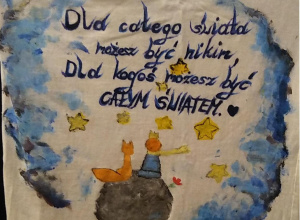 Dla całego świata
możesz być nikim,
Dla kogoś możesz być
CAŁYM ŚWIATEM.